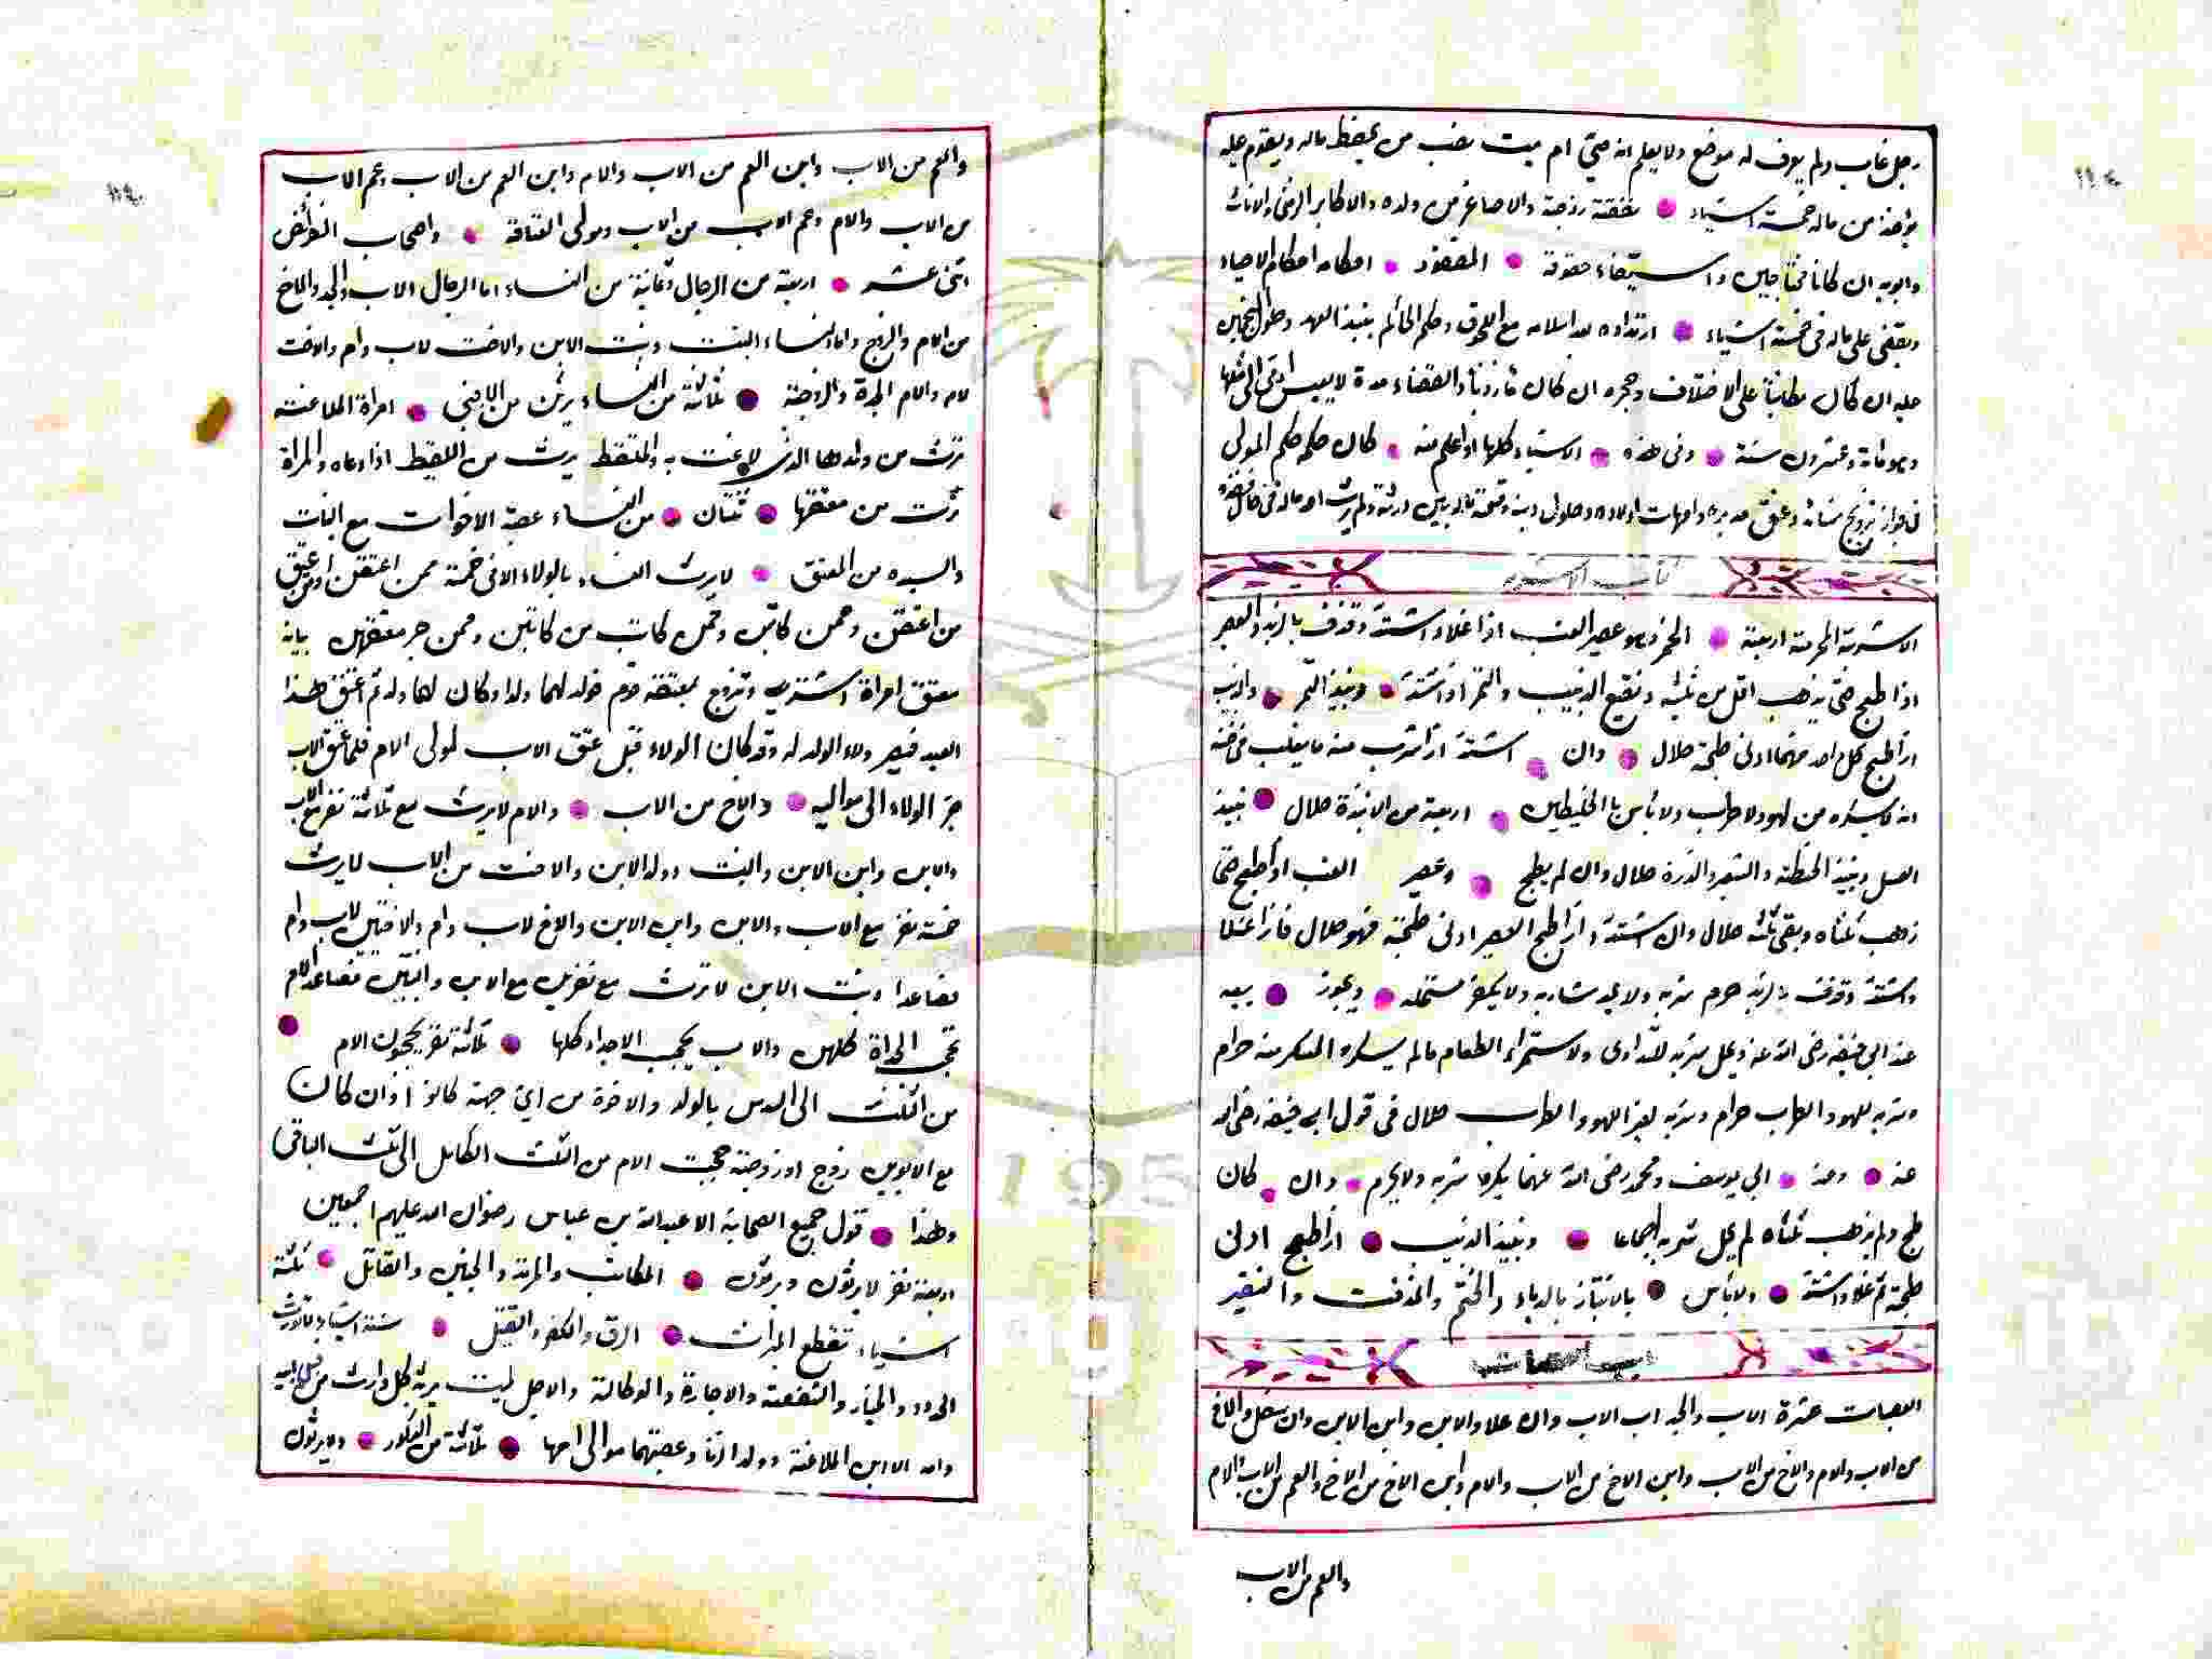 رجل غاب ولم يعرف له موضع ولا يعلم انه حي ام ميت نصب من يحفظ ماله ويقوم عليه
يؤخذ من ماله خمسة اشياء نفقة زوجة والاصاغر من ولده والاكابر الزمنى والاناث
وابويه ان كانا محتاجين واستيفاء حقوقه المفقود احكامه احكام الاحياء
ويقضى على ماله فى خمسة اشياء ارتداده بعد اسلامه مع اللحوق وحكم الحاكم
عليه ان كان على الاختلاف وحجره ان كان ماذونا وانقضاء مدة لا يعيش
وهو مائة وعشرون سنة وفى هذه الاشياء كلها اذا علم منه كان حكمه حكم المولى
فى جواز تزويج وعتق مدبره وامهات اولاده وحلول دينه وقسمة ماله بين ورثته ولم يرث
كتاب الاشربة
الاشربة المحرمة اربعة الخمر وهو عصير العنب اذا غلا واشتد وقذف بالزبد والعصير
اذا طبخ حتى يذهب اقل من ثلثيه ونقيع الزبيب والتمر اذا اشتد ونبيذ التمر والزبيب
اذا طبخ كل واحد منهما ادنى طبخة حلال وان اشتد اذا شرب منه ما يغلب فى ظنه
انه لا يسكره من لهو ولا طرب ولا باس بالخليطين اربعة من الانبذة حلال نبيذ
العسل ونبيذ الحنطة والشعير والذرة حلال وان لم يطبخ وعصير العنب اذا طبخ حتى
ذهب ثلثاه وبقى ثلثه حلال وان اشتد واذا طبخ العصير ادنى طبخة فهو حلال فاذا غلا
واشتد وقذف بالزبد حرم شربه ولا يحد شاربه ولا يكفر مستحله ويجوز بيعه
عند ابى حنيفه رضى الله عنه ويحل شربه للتداوى ولاستمراء الطعام مالم يسكره المسكر منه حرام
وشربه للهو والطرب حرام وشربه لغير اللهو والطرب حلال فى قول ابى حنيفه رضى الله
عنه وعند ابى يوسف ومحمد رضى الله عنهما يكره شربه ولا يحرم وان كان
طبخ ولم يذهب ثلثاه لم يحل شربه اجماعا ونبيذ الزبيب اذا طبخ ادنى
طبخة ثم غلا واشتد ولا باس بالانتباذ بالدباء والحنتم والمزفت والنقير
باب العصبات
العصبات عشرة الاب والجد اب الاب وان علا والابن وابن الابن وان سفل والاخ
من الاب والام والاخ من الاب وابن الاخ من الاب والام وابن الاخ من الاخ والعم من الاب والام
والعم من الاب
والعم من الاب وابن العم من الاب والام وابن العم من الاب وعم الاب
من الاب والام وعم الاب من الاب ومولى العتاقة واصحاب الفرائض
اثنى عشر اربعة من الرجال وثمانية من النساء اما الرجال الاب والجد والاخ
من الام والزوج واما النساء البنت وبنت الابن والاخت لاب وام والاخت
لام والام الجدة والزوجة ثلاثة من النساء يرثن من الاجنبى امراة الملاعنة
ترث من ولدها الذى لاعنت به والملتقط يرث من اللقيط اذا ادعاه والمراة
ترث من معتقها ثنتان من النساء عصبة الاخوات مع البنات
والسيده من المعتق لا يرث النساء بالولاء الا فى خمسة ممن اعتقن او عتق
من اعتقن وممن كاتبن وممن كاتب من كاتبن وممن جر معتقهن بيانه
معتق امراة اشترى وتزوج بمعتقة قوم فولد لهما ولد وكان لهما ولد ثم اعتق هذا
العبد فيصير ولاء الولد له وقد كان الولاء قبل عتق الاب لمولى الام فلما عتق الاب
جر الولاء الى مواليه والاخ من الاب والام لا يرث مع ثلاثة نفر مع الاب
والابن وابن الابن والبنت وولد الابن والاخت من الاب لا يرث
خمسة نفر مع الاب والابن وابن الابن والاخ لاب وام والاختين لاب وام
فصاعدا وبنت الابن لا ترث مع نفرين مع الابن والبنتين فصاعدا الام
تحجب الجداة كلهن والاب يحجب الاجداد كلها ثلاثة نفر يحجبون الام
من الثلث الى السدس بالولد والاخوة من اى جهة كانوا اذان كان
مع الابوين زوج او زوجة حجبت الام من الثلث الكامل الى ثلث الباقى
وهذا قول جميع الصحابة الا عبد الله بن عباس رضوان الله عليهم اجمعين
اربعة نفر لا يرثون ويرثون المكاتب والمرتد والجنين والقاتل ثلثة
اشياء تقطع الميراث الرق والكفر والقتل ستة اشياء لا تورث
الحدود والخيار والشفعة والاجارة والوكالة والاجل ميت يرثه كل وارث من قبل ابيه
وامه الا ابن الملاعنة وولد الزنا وعصبتهما موالى امها ثلاثة من الذكور ولا يرثون